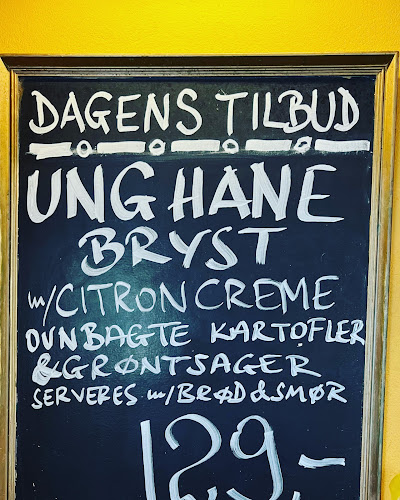 DAGENS TILBUD
UNG HANE
BRYST
m/CITRONCREME
OVNBAGTE KARTOFLER
&GRØNTSAGER
SERVERES m/BRØD&SMØR
129,-